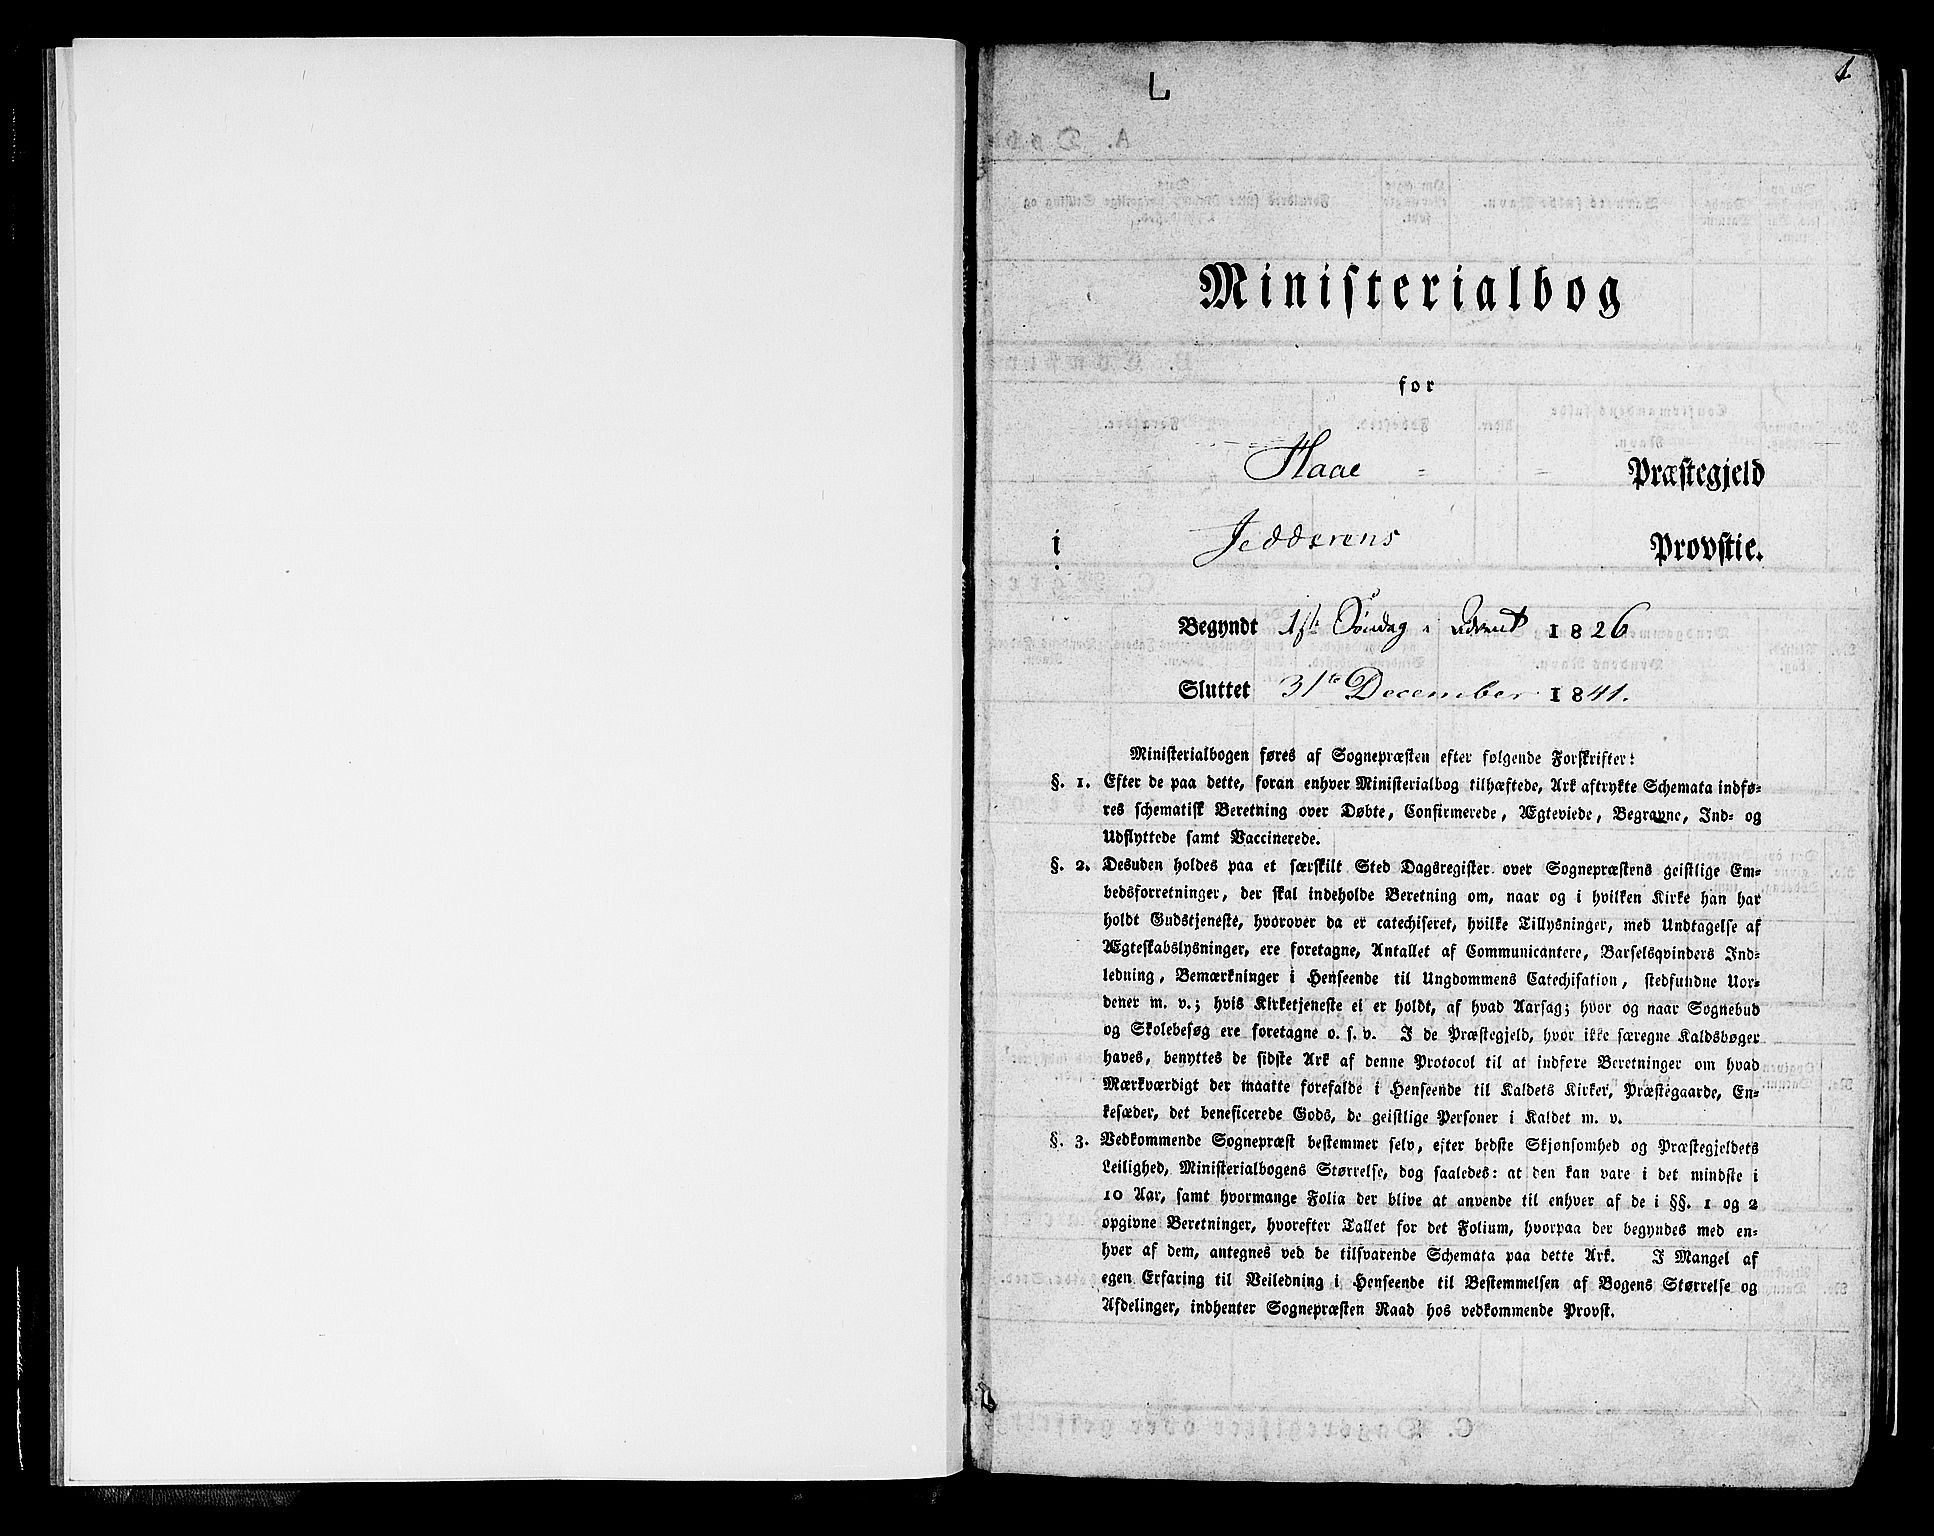 1
L
Ministerialbog
for
Haae = = Præstegjeld
i Jedderens Provstie.
Begyndt 1ste Søndag i Advent 1826
Sluttet 31te December 1841.
Ministerialbogen føres af Sognepræsten efter følgende Forskrifter:
§. 1. Efter de paa dette, foran enhver Ministerialbog tilhæftede, Ark aftrykte Schemata indfø-
res schematisk Beretning over Døbte, Confirmerede, Ægteviede, Begravne, Ind- og
Udflyttede samt Vaccinerede.
§. 2. Desuden holdes paa et særskilt Sted Dagsregister over Sognepræstens geistlige Em-
bedsforretninger, der skal indeholde Beretning om, naar og i hvilken Kirke han har
holdt Gudstjeneste, hvorover da er catechiseret, hvilke Tillysninger, med Undtagelse af
Ægteskabslysninger, ere foretagne, Antallet af Communicantere, Barselqvinders Ind-
ledning, Bemærkninger i Henseende til Ungdommens Catechisation, stedfundne Uor-
dener m. v.; hvis Kirketjeneste ei er holdt, af hvad Aarsag; hvor og naar Sognebud
og Skolebesøg ere foretagne o. s. v. I de Præstegjeld, hvor ikke særegne Kaldsbøger
haves, benyttes de sidste Ark af denne Protocol til at indføre Beretninger om hvad
Mærkværdigt der maatte forefalde i Henseende til Kaldets Kirker, Præstegaarde, En-
kesæder, det beneficerede Gods, de geistlige Personer i Kaldet m. v.
§. 3. Vedkommende Sognepræst bestemmer selv, efter bedste Skjønsomhed og Præstegjeldets
Leilighed, Ministerialbogens Størrelse, dog saaledes: at den kan vare i det mindste i
10 Aar, samt hvormange Folia der blive at anvende til enhver af de i §§. 1 og 2
opgivne Beretninger, hvorefter Tallet for det Folium, hvorpaa der begyndes med en-
hver af dem, antegnes ved de tilsvarende Schemata paa dette Ark. I Mangel af
egen Erfaring til Veiledning i Henseende til Bestemmelsen af Bogens Størrelse og
Afdelinger, indhenter Sognepræsten Raad hos vedkommende Provst.